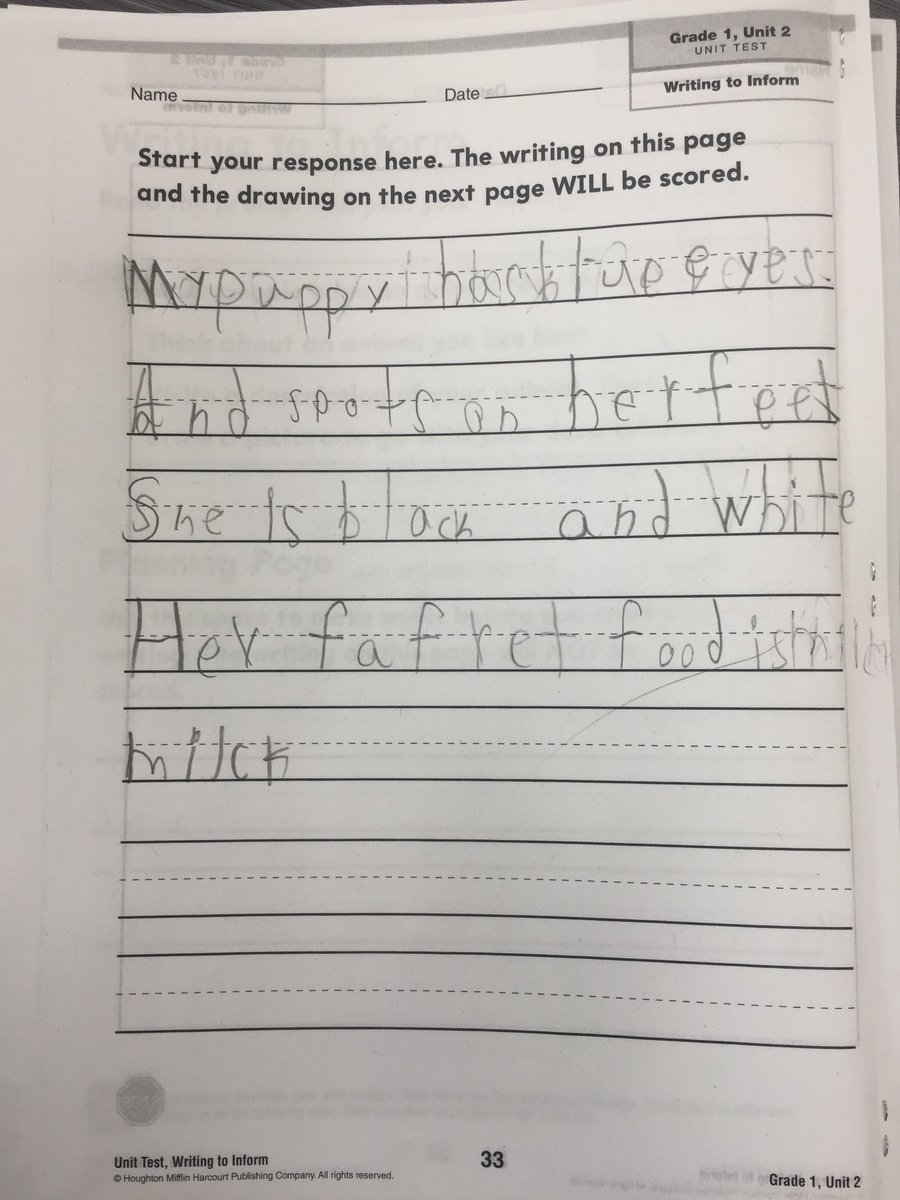 Grade 1, Unit 2
UNIT TEST
Writing to Inform
Name
Date
Start your response here. The writing on this page
and the drawing on the next page WILL be scored.
My puppy has blue eyes.
And spots on her feet
She Is black and white
Her fafret food is
milck
Unit Test, Writing to Inform
© Houghton Mifflin Harcourt Publishing Company. All rights reserved.
33
Grade 1, Unit 2